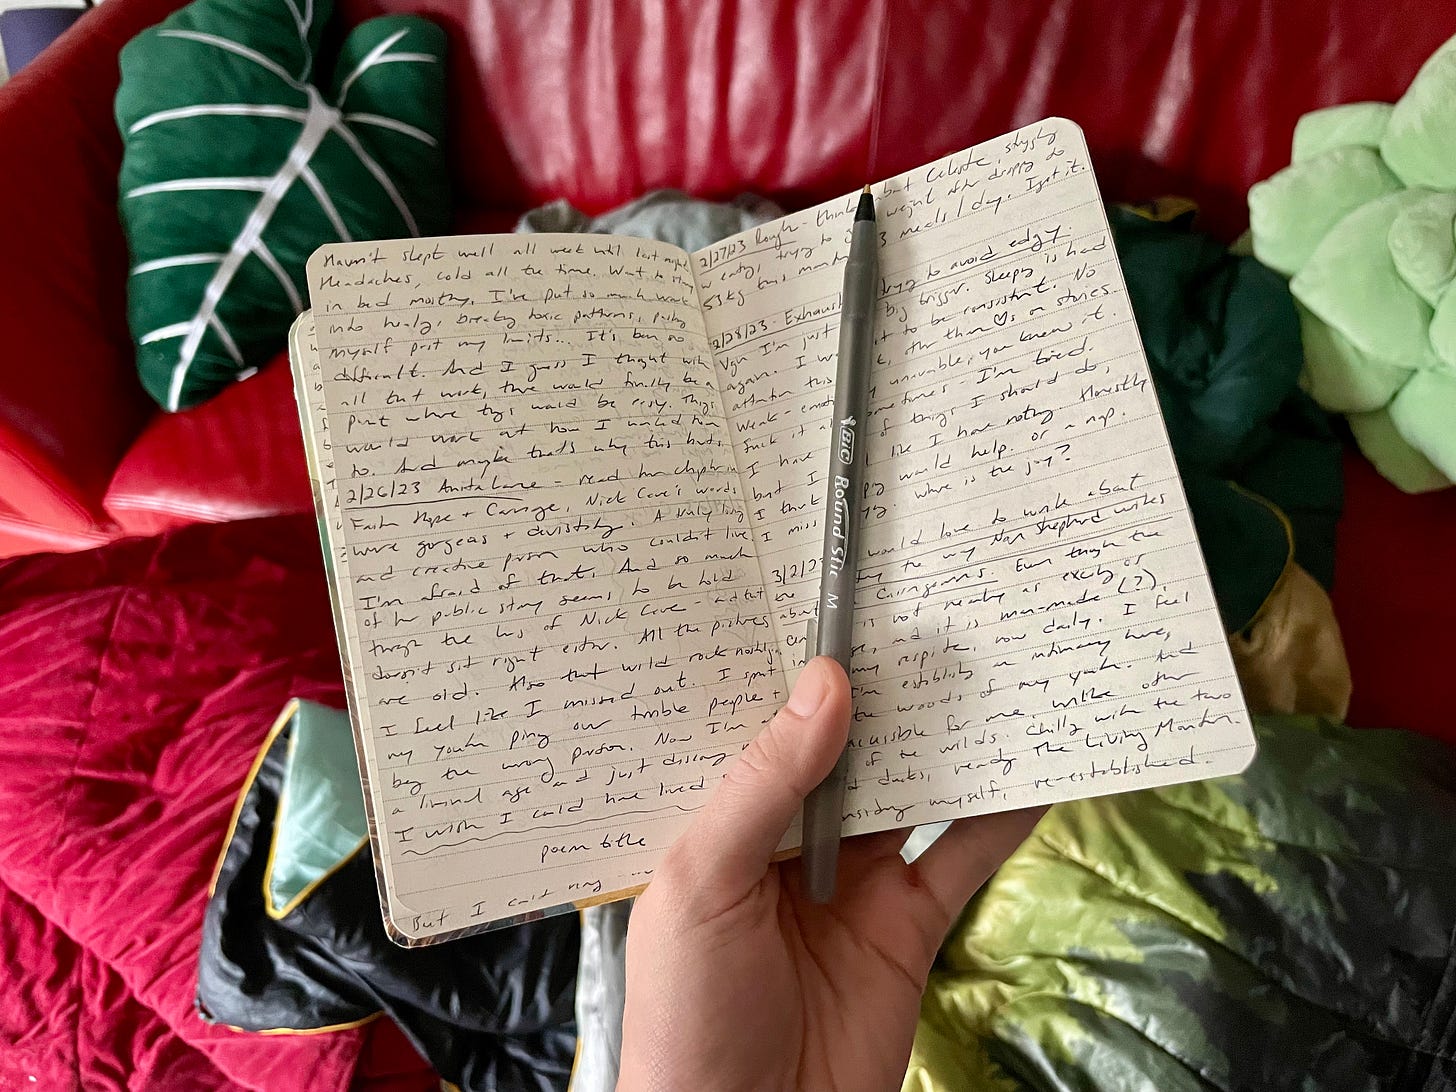 Haven't slept well all week until last night.
Headaches, cold all the time. Want to stay
in bed mostly. I've put so much work
into healing, breaking toxic patterns, pushing
myself past my limits... It's been so
difficult. And I guess I thought with
all that work, there would finally be a
point where things would be easy. Things
would work out how I wanted them
to. And maybe that's why this hurts.
2/26/23 Anita Lane - read
Faith Hope + Carnage, Nick Cave's words
were gorgeous + devastating. A truly
and creative person who couldn't live
I'm afraid of that. And so much
of her public story seems to be told
through the lens of Nick Cave - and that
doesn't sit right either. All the pictures
are old. Also that wild rock
I feel like I missed out. I spent
my youth playing our terrible people +
being the wrong person. Now I'm
a liminal age and just discovering
I wish I could have lived
poem title
But I can't
2/27/23 Rough - but Celeste, struggling
w eating, trying to weight after dropping to
53kg this month. 3 meals/day. I got it.
2/28/23 - Exhausted trying to avoid edgy.
I'm just big trigger. sleeping is hard
again. I to be consistent. No
attention this other than on stories
weak - unavailable, you know it.
fuck it sometimes - I'm tired.
I have of things I should do,
but I like I have nothing. Honestly
I think would help. or a nap.
I miss where is the joy?
3/2/23 would love to write about
the way Nan Shepherd writes
the Cairngorms. Even though the
about is not nearly as exciting or
and it is man-made (?),
my respite, now daily. I feel
I'm establishing an intimacy here,
the woods of my youth. And
accessible for me, unlike other
of the wilds. Chilly with the two
ducks, reading The Living Mountain.
myself, re-established.
BIC Round Stic M